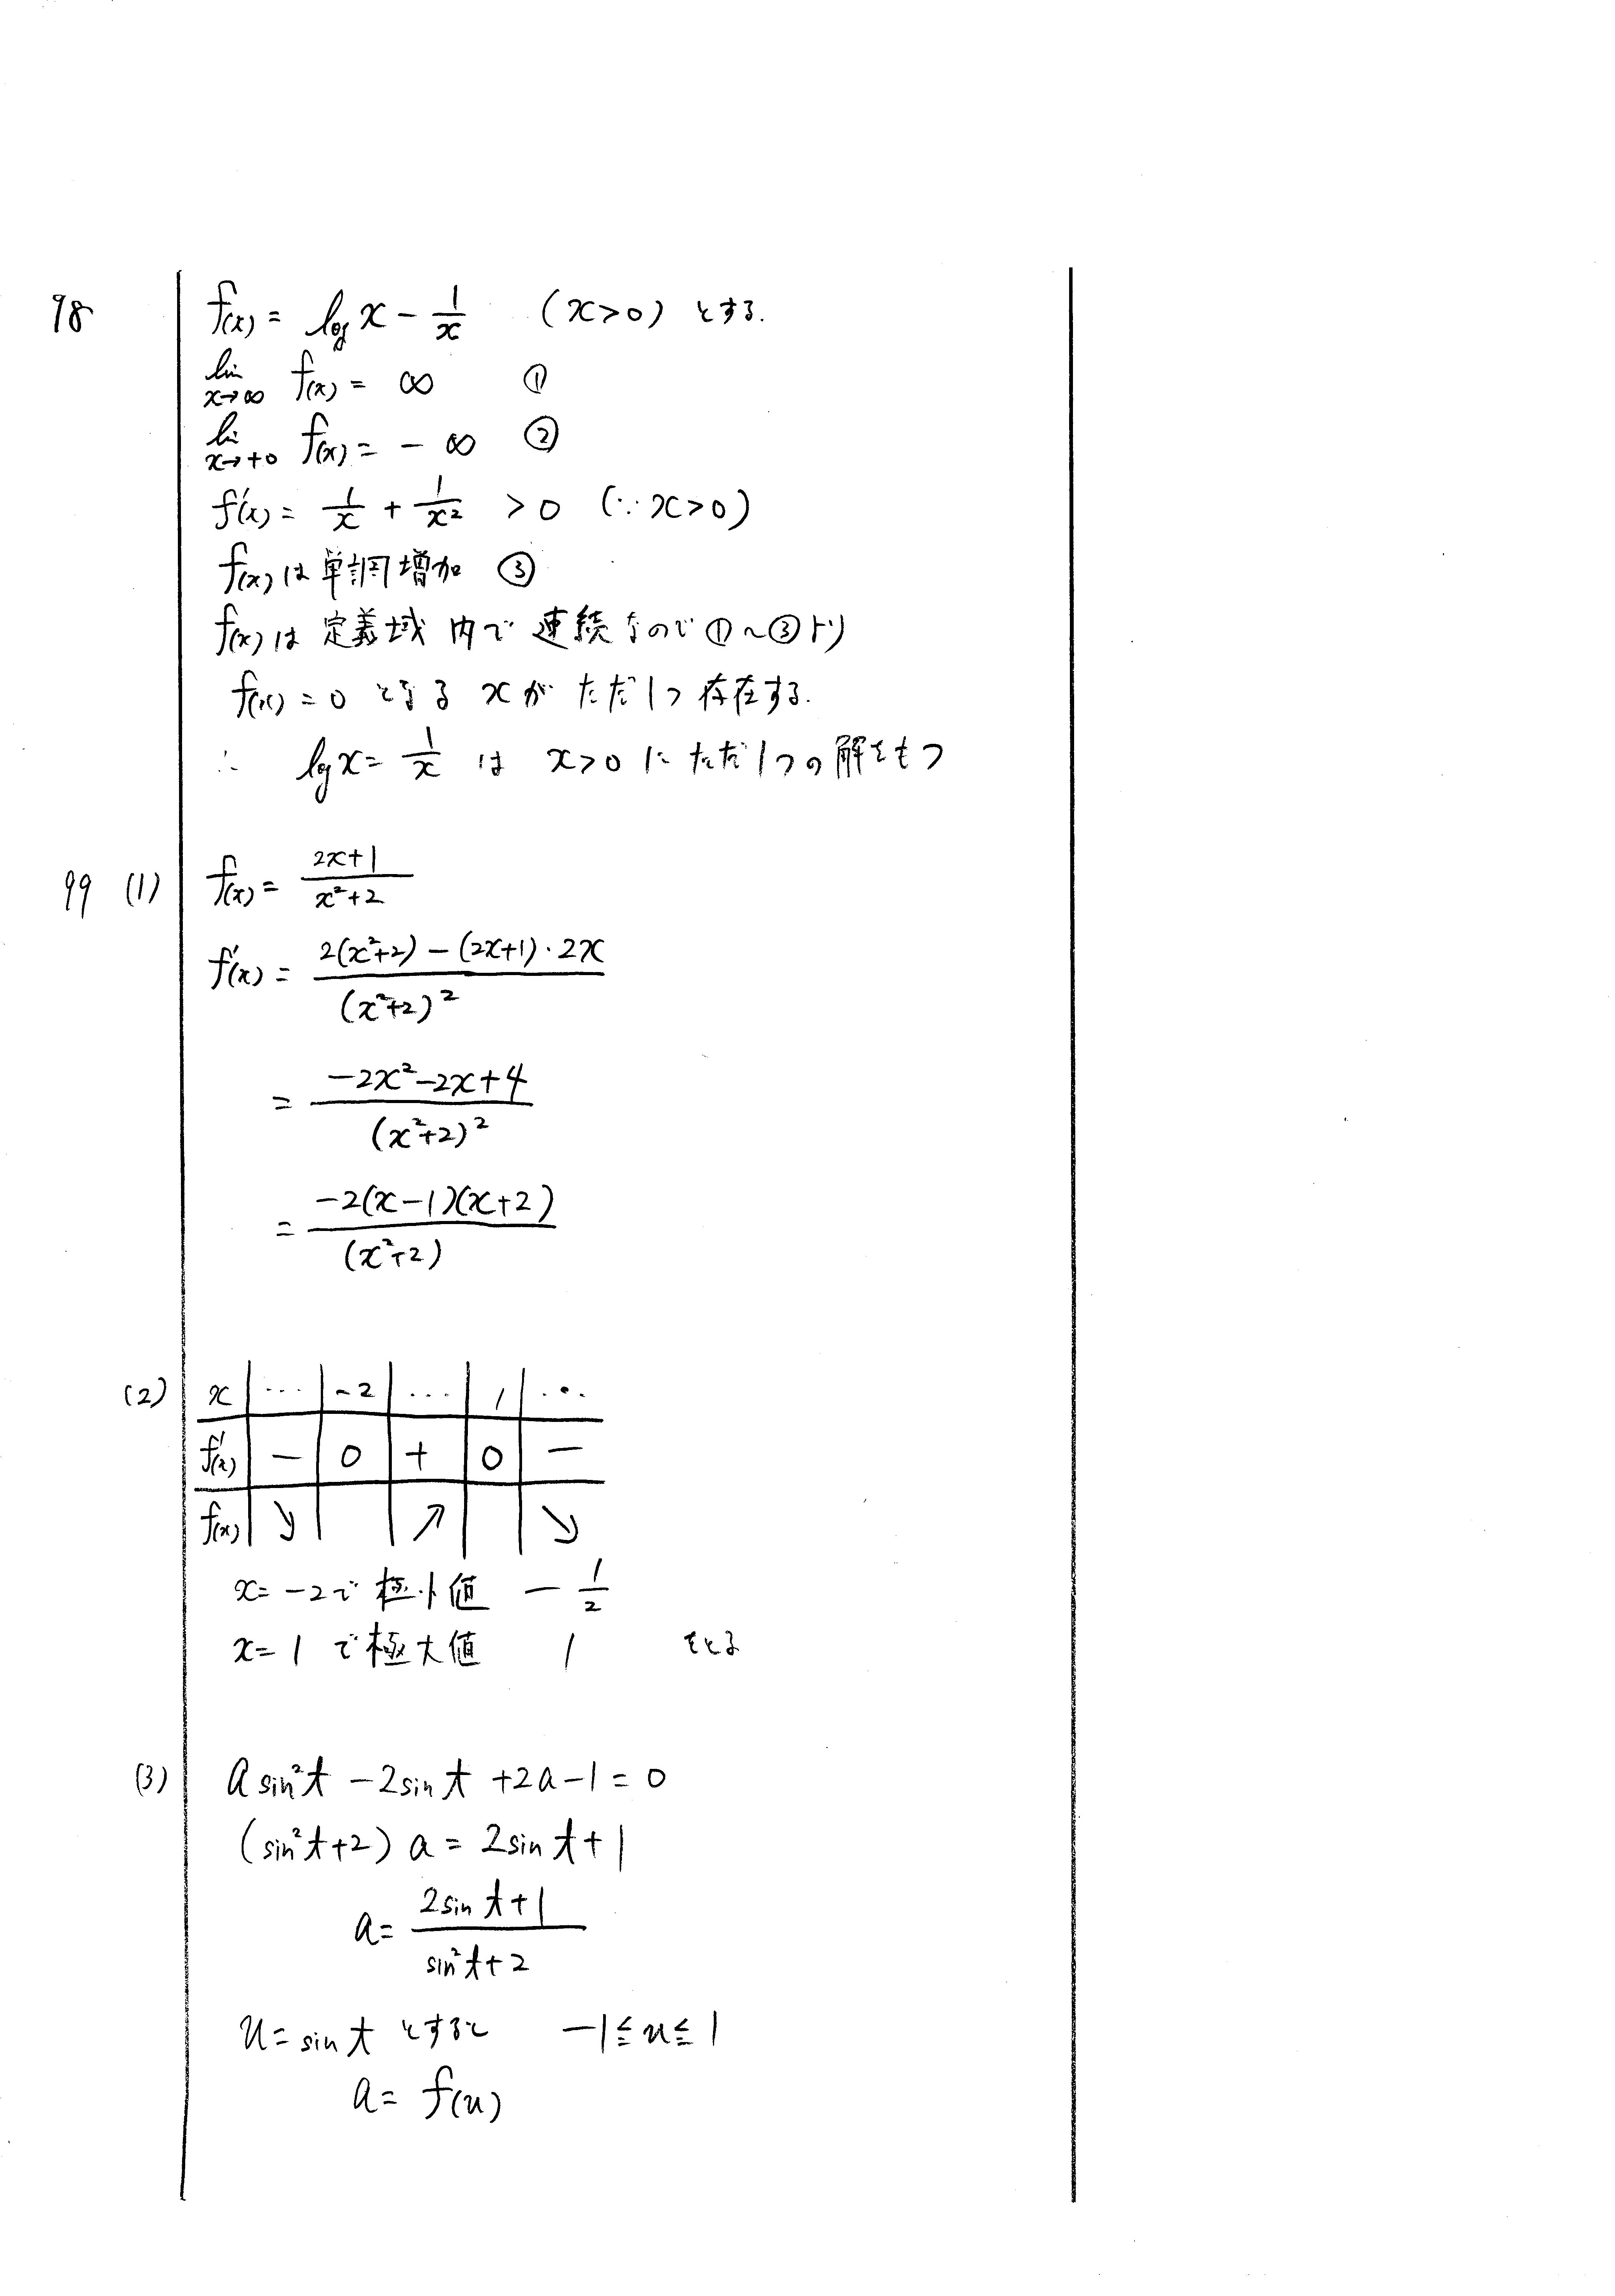 98 f(x) = log x − 1/x (x>0) とする.
lim x→∞ f(x) = ∞ ①
lim x→+0 f(x) = − ∞ ②
f'(x) = 1/x + 1/x² > 0 (∵ x>0)
f(x)は単調増加 ③
f(x)は 定義域 内で 連続なので ①〜③より
f(x) = 0 となる xが ただ1つ 存在する.
∴ log x = 1/x は x>0 に ただ1つの解をもつ
99 (1) f(x) = (2x+1)/(x²+2)
f'(x) = (2(x²+2) − (2x+1)・2x)/(x²+2)²
= (−2x²−2x+4)/(x²+2)²
= (−2(x−1)(x+2))/(x²+2)
(2) x | … | −2 | … | 1 | …
f'(x) | − | 0 | + | 0 | −
f(x) | ↘ | | ↗ | | ↘
x=−2で 極小値 − 1/2
x=1で極大値 1 をとる
(3) a sin²t − 2sin t + 2a − 1 = 0
(sin²t+2) a = 2sin t + 1
a = (2sin t + 1)/(sin²t + 2)
u = sin t とすると −1≦u≦1
a = f(u)